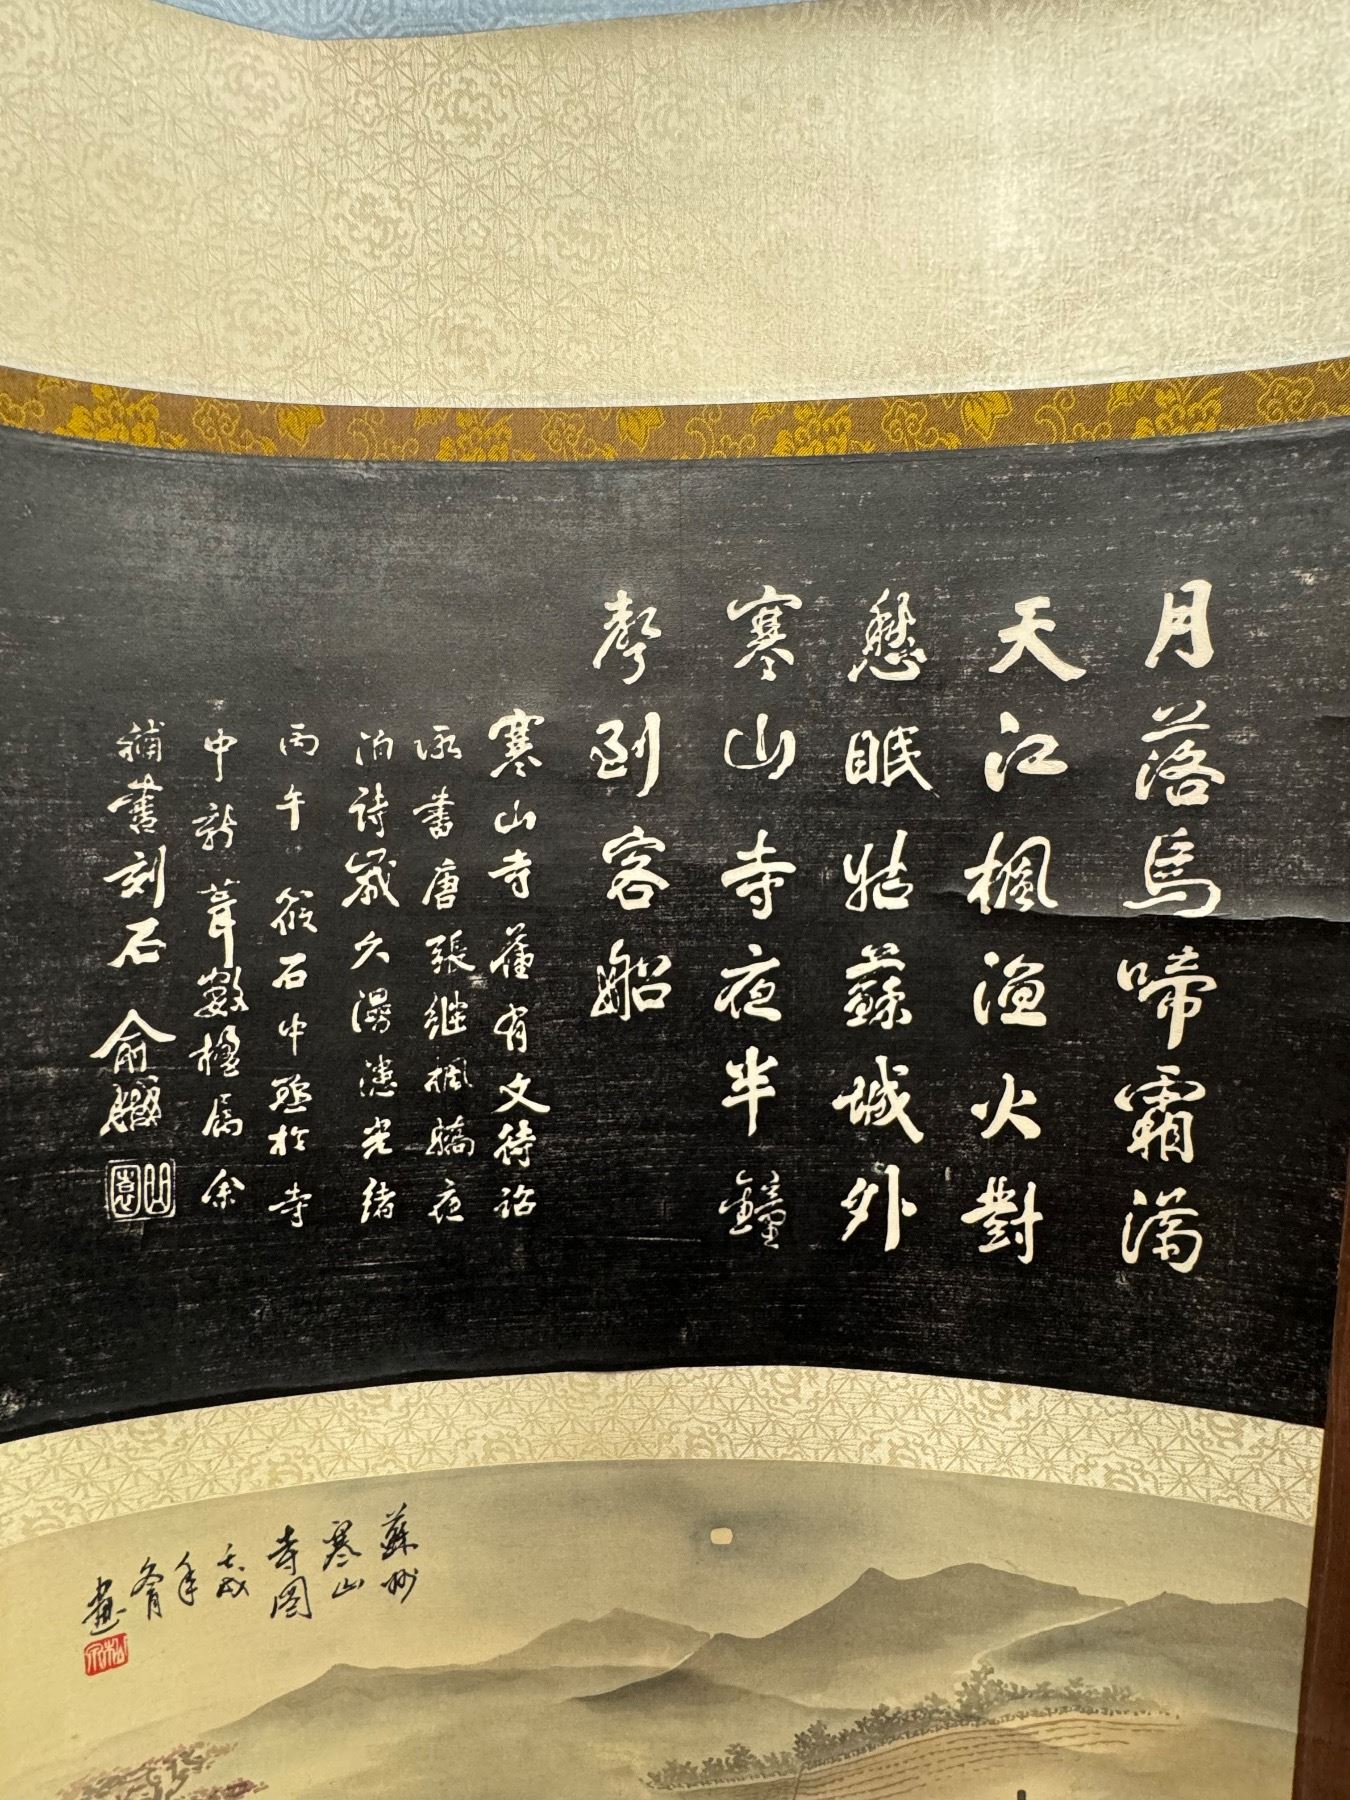 月落烏啼霜滿
天江楓漁火對
愁眠姑蘇城外
寒山寺夜半鐘
聲到客船
寒山寺舊有文待詔
所書唐張繼楓橋夜
泊詩歲久漫漶光緒
丙午筱石中丞於寺
中新葺數楹屬余
補書刻石 俞樾
蘇州
寒山
寺図
壬戌
年
畫